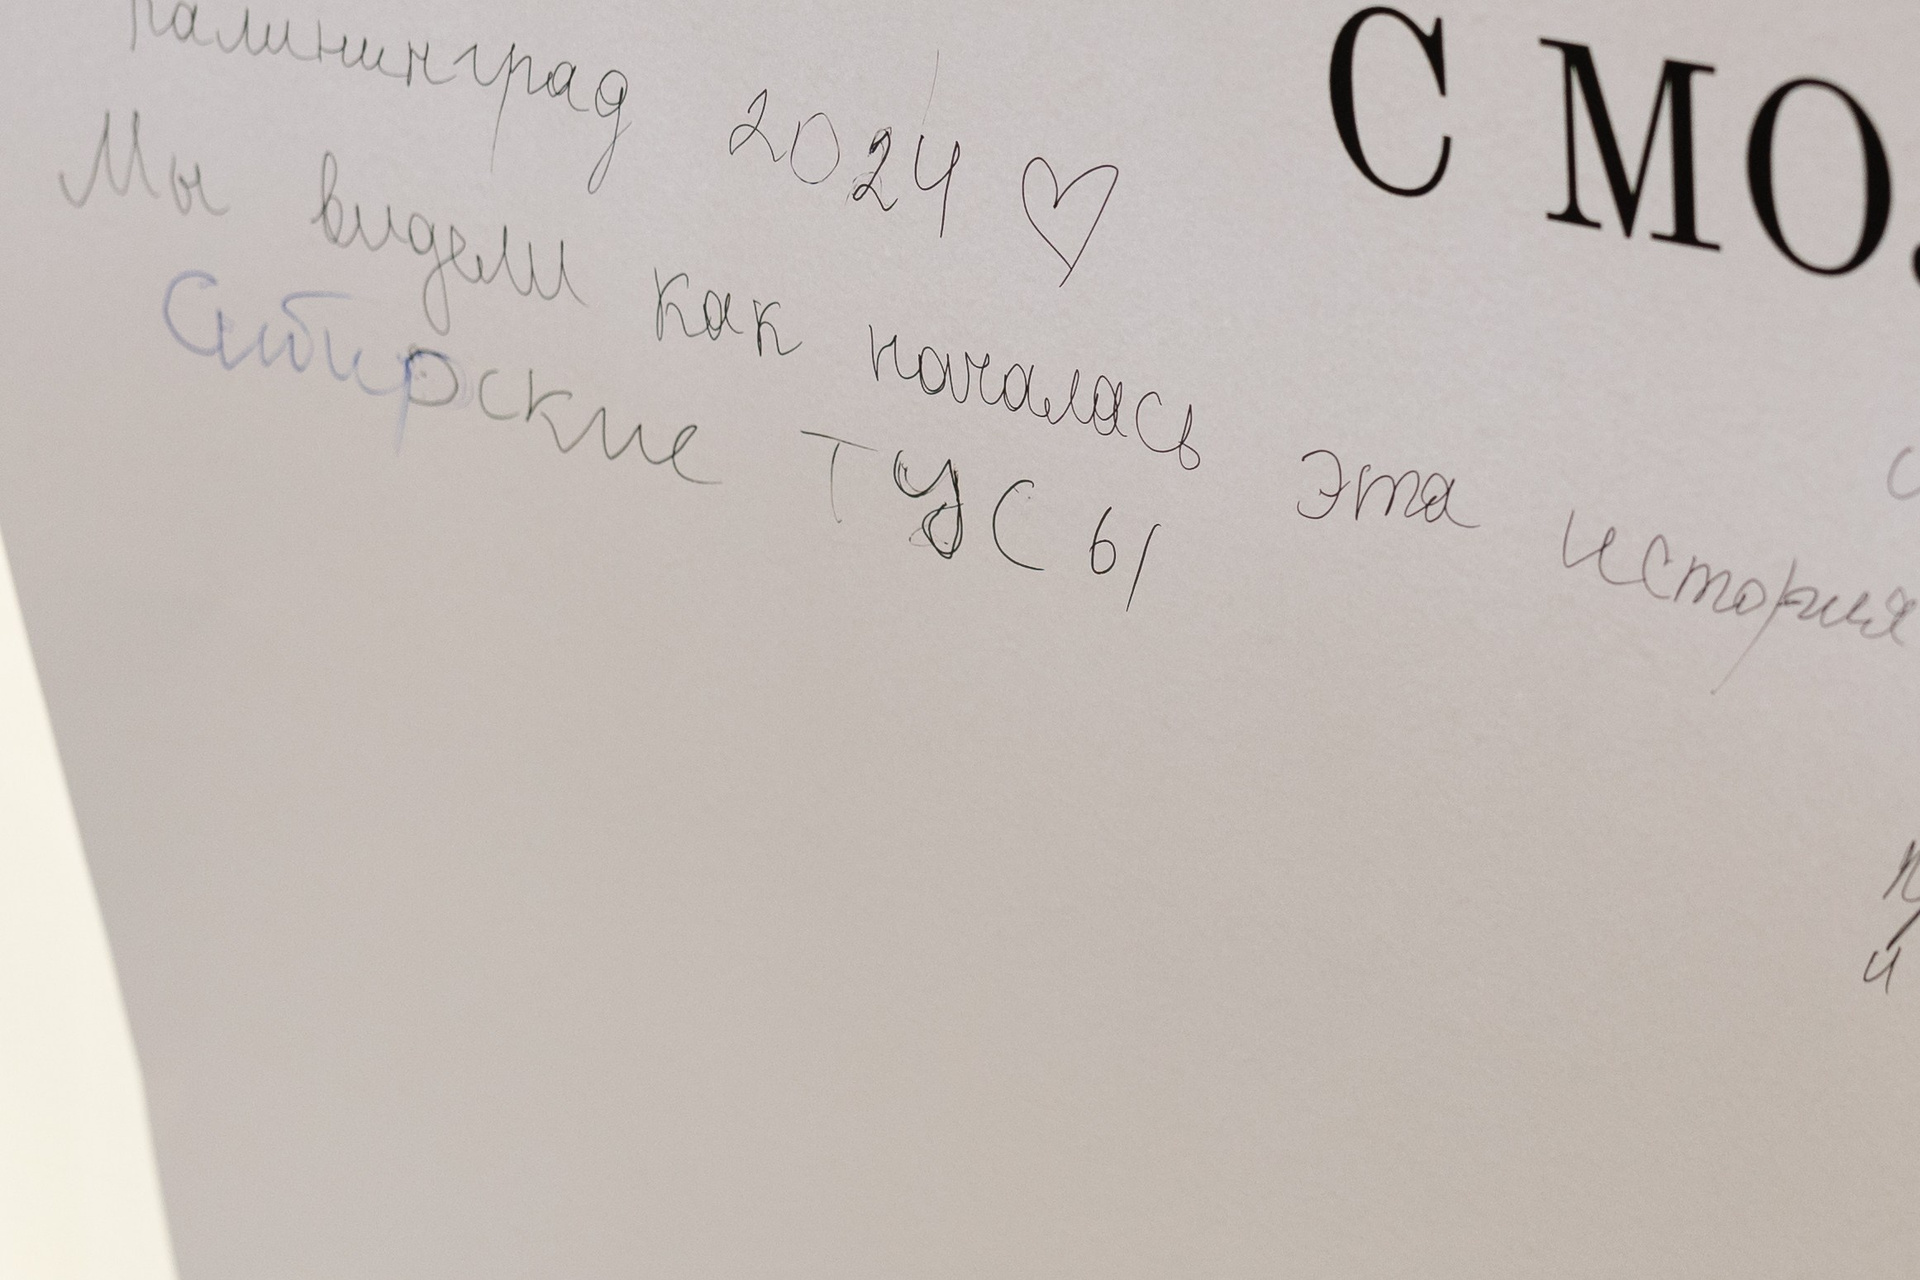 Калининград 2024 ♡
С МО
Мы видели как началась эта история
Сибирские ТУСЫ